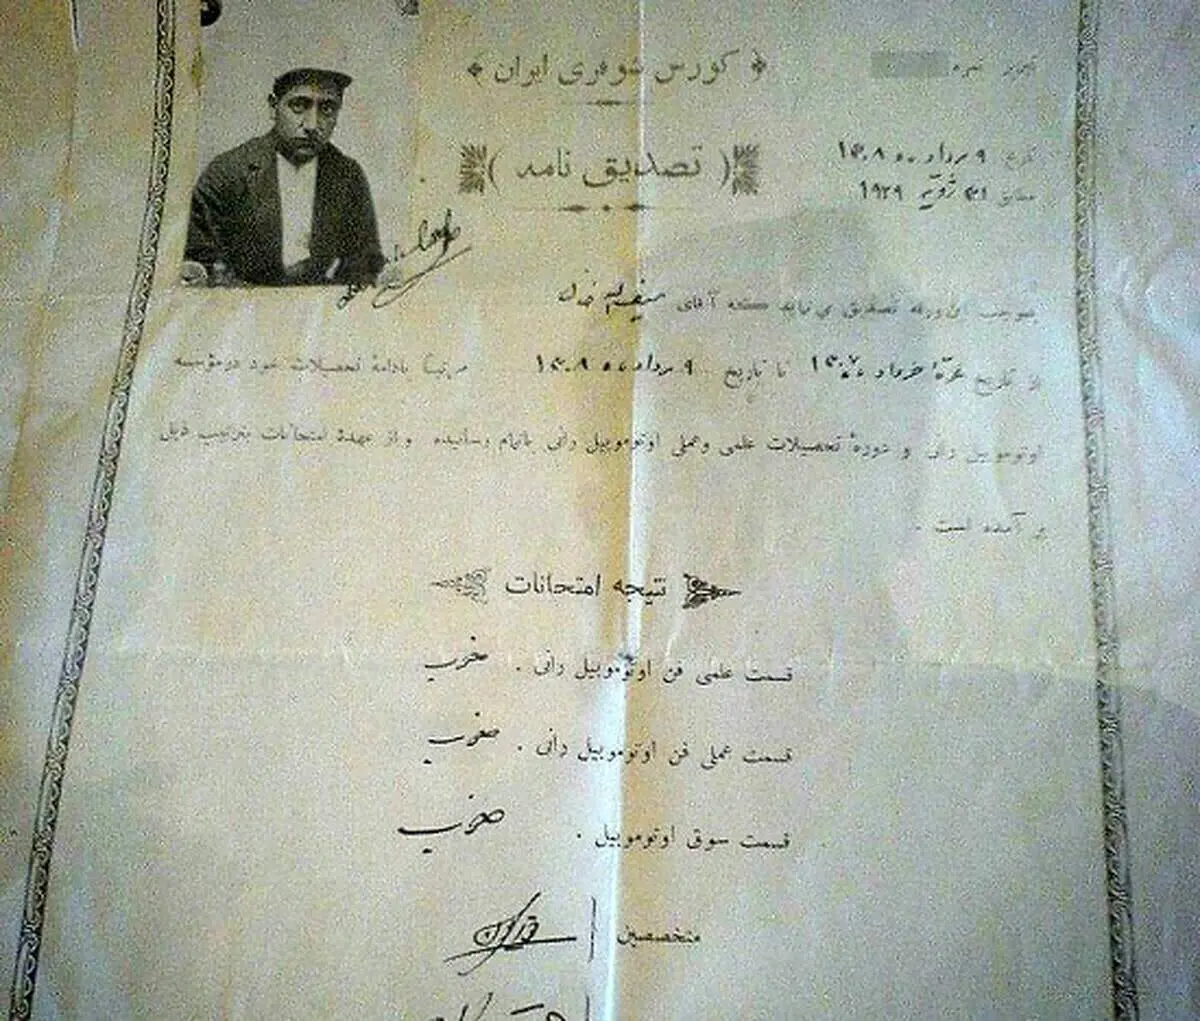 کورس شوفری ایران
نمره
( تصدیق نامه )
تاریخ ۹ مرداد ماه ۱۳۰۸
مطابق ۳۱ ژوئیه ۱۹۲۹
بموجب این ورقه تصدیق می نماید که آقای خان
از تاریخ غرهٔ خرداد ۱۳۰۷ تا تاریخ ۹ مرداد ماه ۱۳۰۸ مرتباً بادامهٔ تحصیلات خود در مؤسسه
اوتوموبیل رانی و دورهٔ تحصیلات علمی وعملی اوتوموبیل رانی باتمام رسانیده و از عهدهٔ امتحانات بترتیب ذیل
بر آمده است .
نتیجه امتحانات
قسمت علمی فن اوتوموبیل رانی . خوب
قسمت عملی فن اوتوموبیل رانی . خوب
قسمت سوق اوتوموبیل . خوب
متخصصین